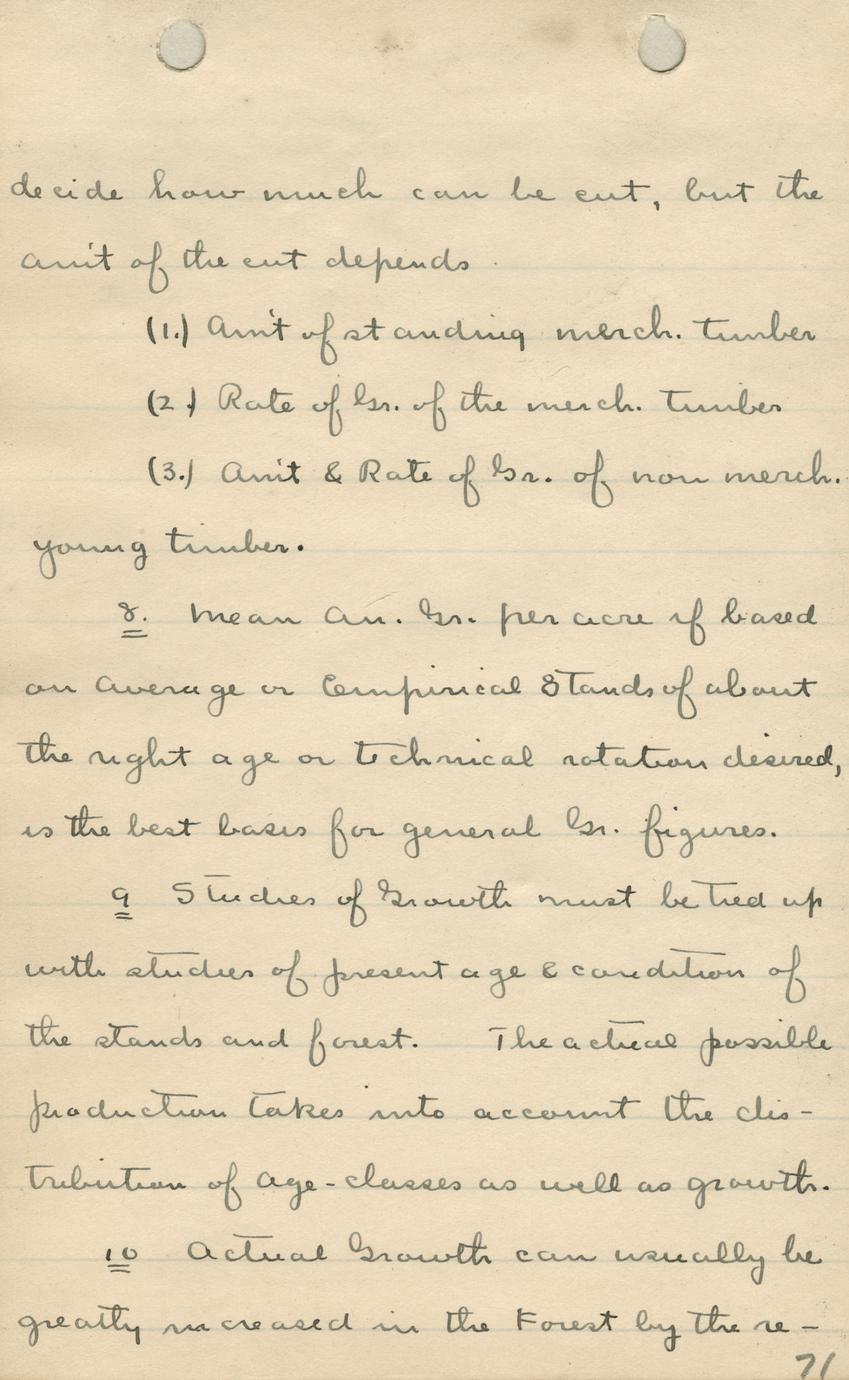 decide how much can be cut, but the
am't of the cut depends
(1.) Am't of standing merch. timber
(2.) Rate of Gr. of the merch. timber
(3.) Am't & Rate of Gr. of non merch.
young timber.
8. Mean An. Gr. per acre if based
on Average or Empirical Stands of about
the right age or technical rotation desired,
is the best basis for general Gr. figures.
9 Studies of Growth must be tied up
with studies of present age & condition of
the stands and forest. The actual possible
production takes into account the dis-
tribution of Age-classes as well as growth.
10 Actual Growth can usually be
greatly increased in the Forest by the re-
71